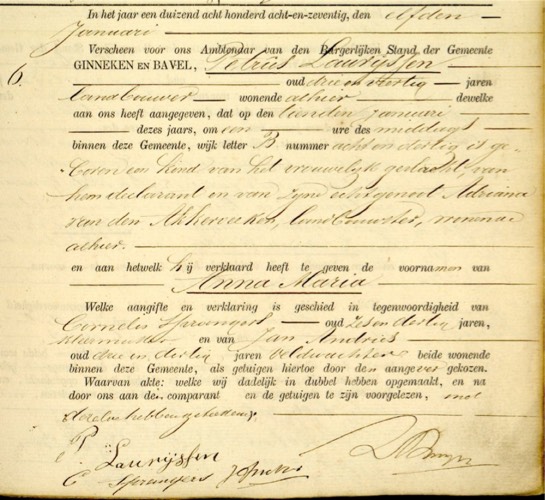 In het jaar een duizend acht honderd acht-en-zeventig, den elfden
Januari
Verscheen voor ons Ambtenaar van den Burgerlijken Stand, der Gemeente
6. GINNEKEN EN BAVEL, Petrus Laurijssen
oud drie en veertig jaren
landbouwer wonende alhier dewelke
aan ons heeft aangegeven, dat op den tienden januari
dezes jaars, om een ure des middags
binnen deze Gemeente, wijk letter B nummer acht en dertig is ge-
boren een kind van het vrouwelijk geslacht, van
hem declarant en van zijne echtgenoot Adriana
van den Akkerveken, landbouwster, wonende
alhier.
en aan hetwelk hij verklaard heeft te geven de voornamen van
Anna Maria
Welke aangifte en verklaring is geschied in tegenwoordigheid van
Cornelis Sprangers oud zes en dertig jaren,
kleermaker en van Jan Andries
oud drie en dertig jaren veldwachter beide wonende
binnen deze Gemeente, als getuigen hiertoe door den aangever gekozen.
Waarvan akte: welke wij dadelijk in dubbel hebben opgemaakt, en na
door ons aan den comparant en de getuigen te zijn voorgelezen, met
dezelve hebben geteekend.
P. Laurijssen
C Sprangers